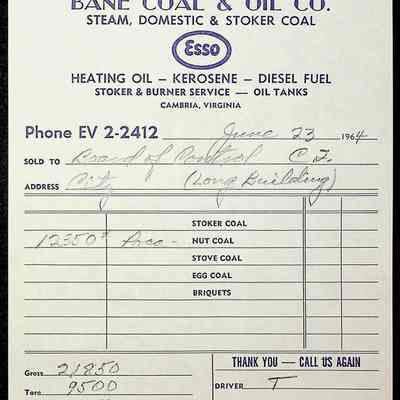 BANE COAL & OIL CO.
STEAM, DOMESTIC & STOKER COAL
Esso
HEATING OIL — KEROSENE — DIESEL FUEL
STOKER & BURNER SERVICE — OIL TANKS
CAMBRIA, VIRGINIA
Phone EV 2-2412 June 23 1964
SOLD TO Board of Control C.I.
ADDRESS City (Long Building)
STOKER COAL
12350# Arco - NUT COAL
STOVE COAL
EGG COAL
BRIQUETS
Gross 21850
THANK YOU — CALL US AGAIN
Tare 9500
DRIVER T